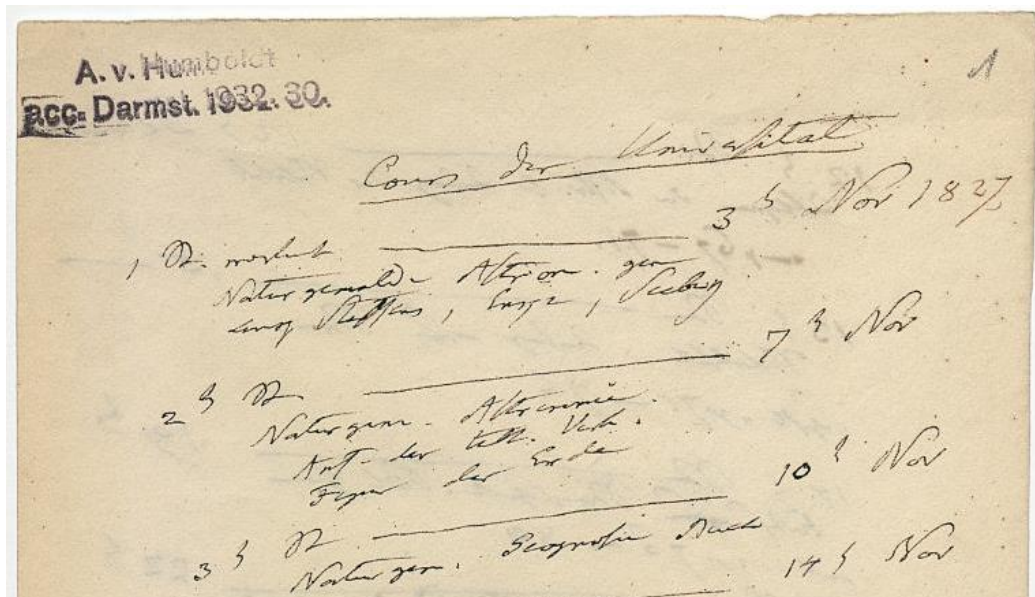 A. v. Humboldt
acc. Darmst. 1932. 30.
1
Cours der Universität
1 St. 3 t Nov 1827
Naturgemälde Astron. gen
Steffens,
2 t St. 7 t Nov
Naturgem. Astronomie.
Anf. der tell. Verh.
Figur der Erde
3 t St. 10 t Nov
Naturgem. Geognosie
14 t Nov